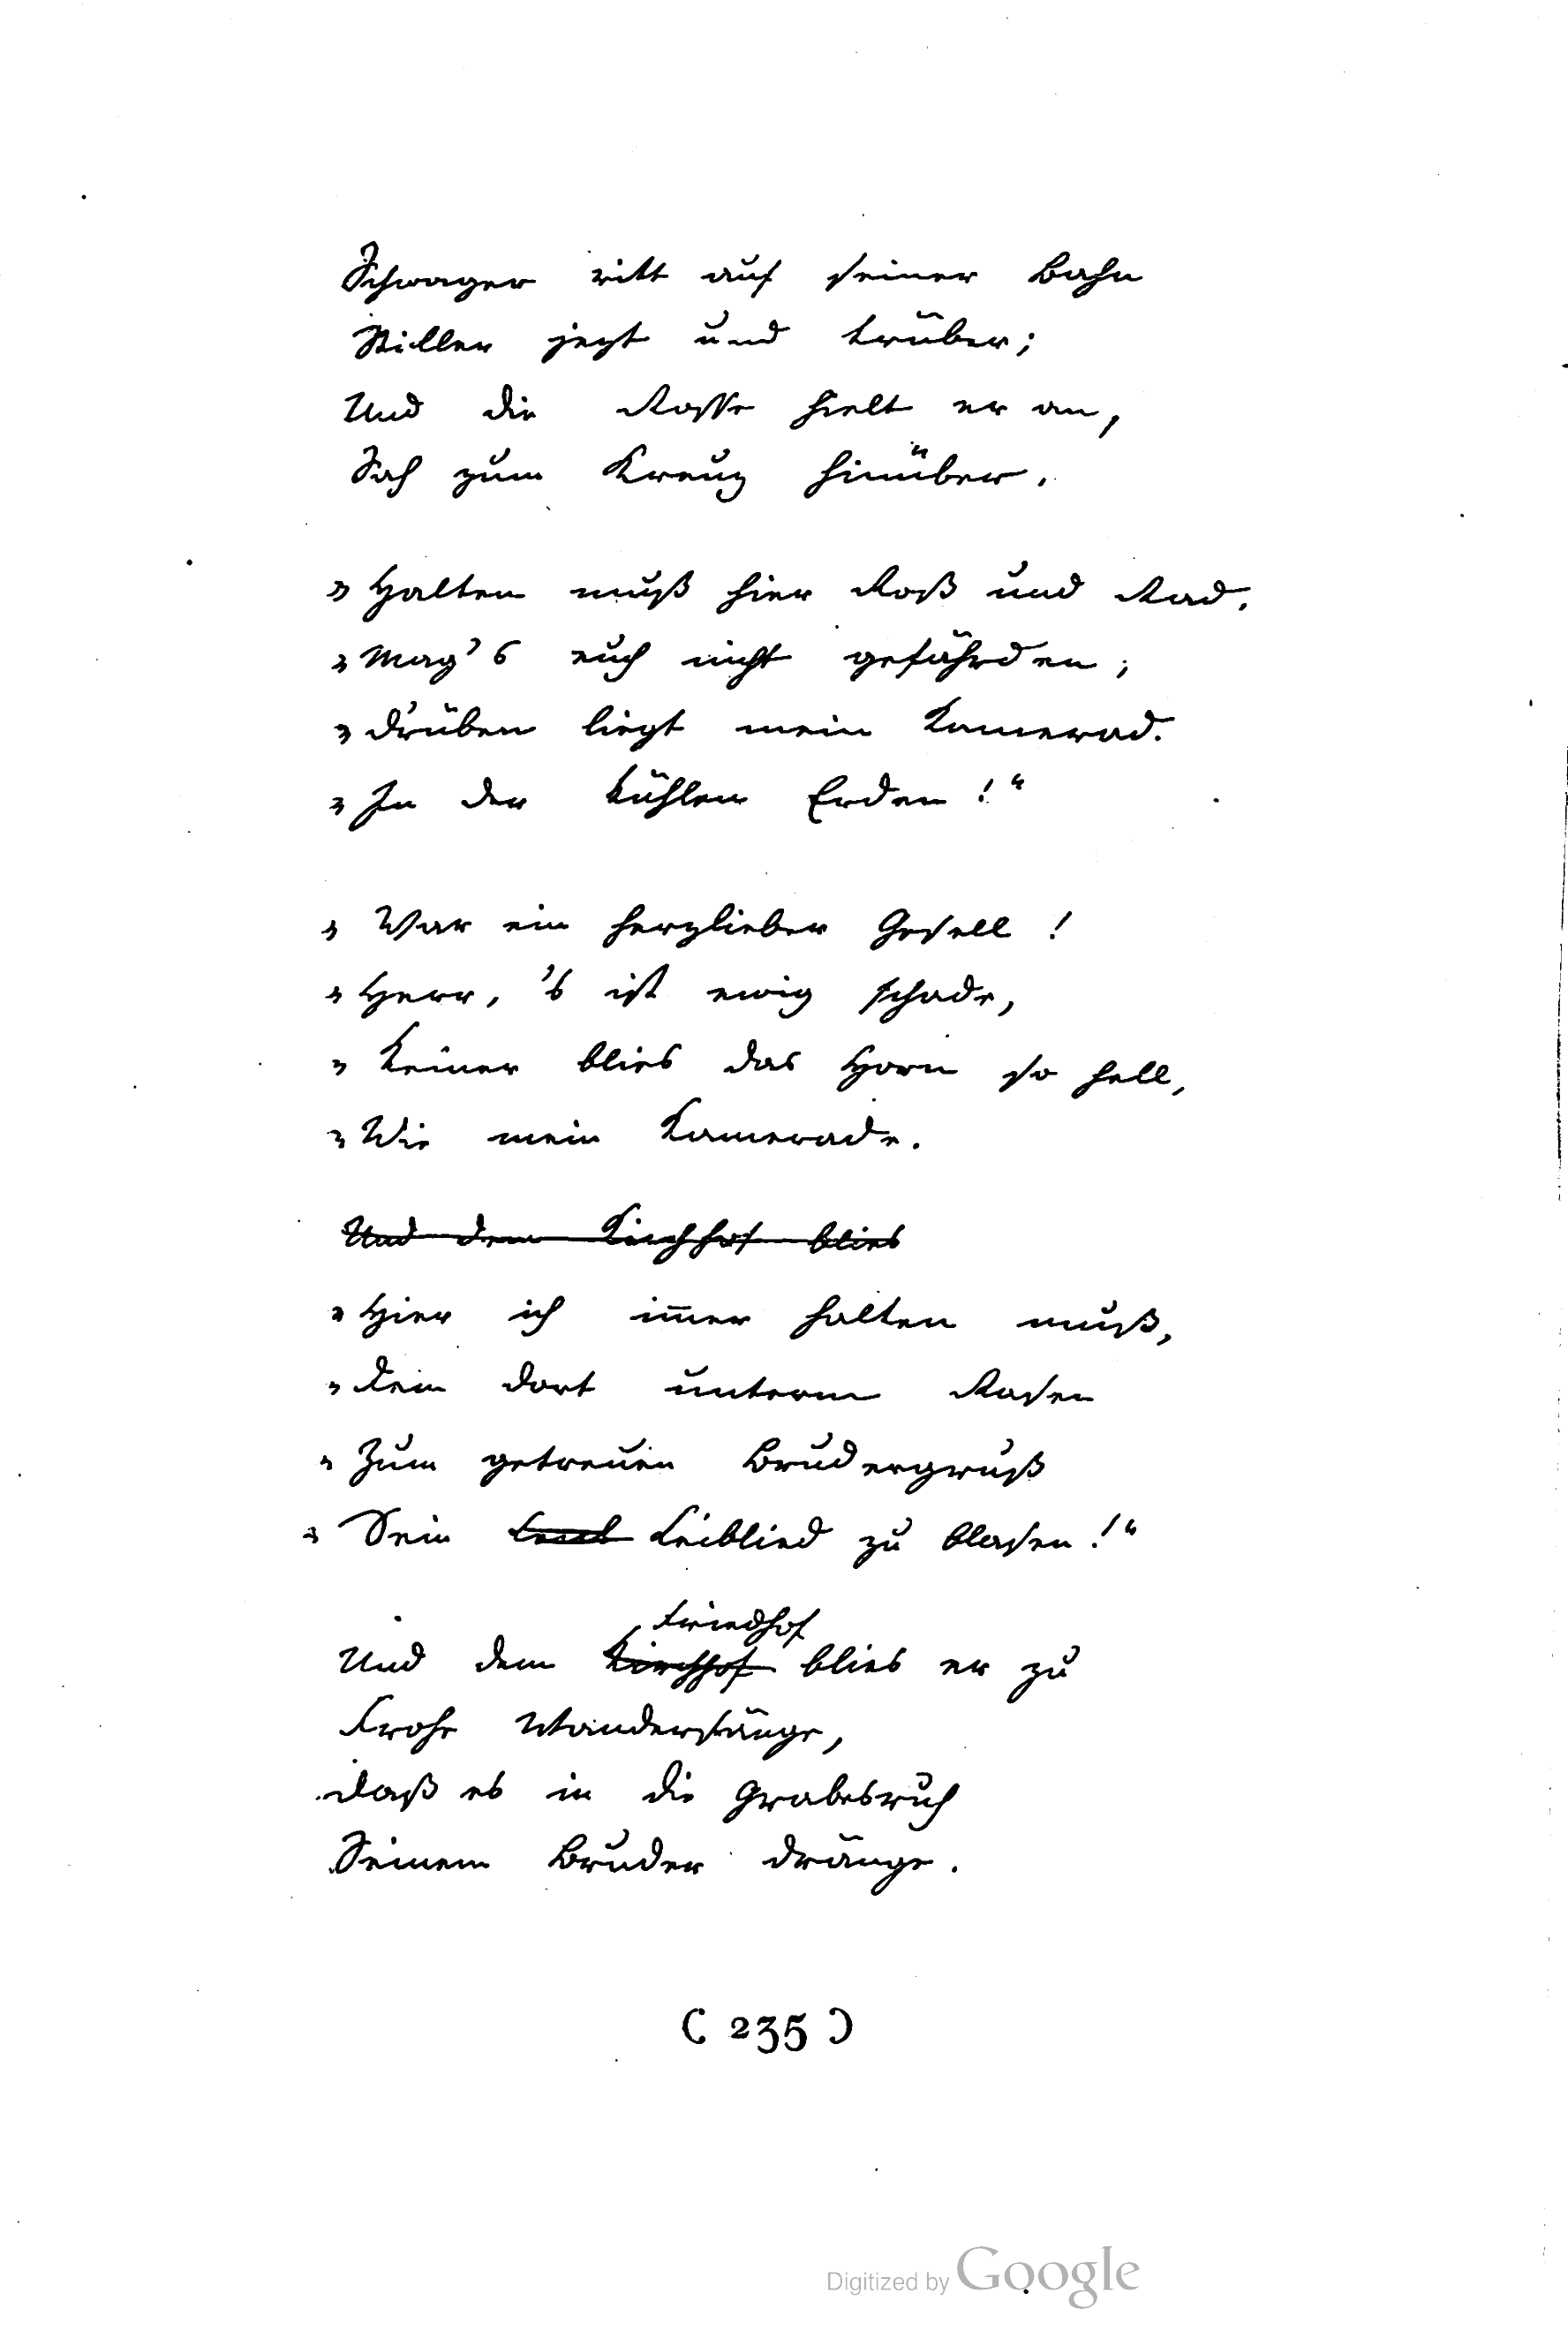 Schwager ritt auf seiner Bahn
Stiller jezt und trüber;
Und die Rosse hielt er an,
Sah zum Kreuz hinüber.
„Halten muß hier Roß und Rad.
„Mag's euch nicht gefährden;
„Drüben liegt mein Kamerad.
„In der kühlen Erden!“
„War ein herzlieber Gesell!
„Herr, 's ist ewig schade,
„Keiner blies das Horn so hell,
„Wie mein Kamerade.
Und dem Kirchhof blies
„Hier ich im̅er halten muß,
„Dem dort unterm Rasen
„Zum getreuen Brudergruß
„Sein Leiblied zu blasen!“
Friedhof
Und dem Kirchhof blies er zu
Frohe Wandersänge,
Daß es in die Grabesruh
Seinem Bruder dränge.
( 235 )
Digitized by Google